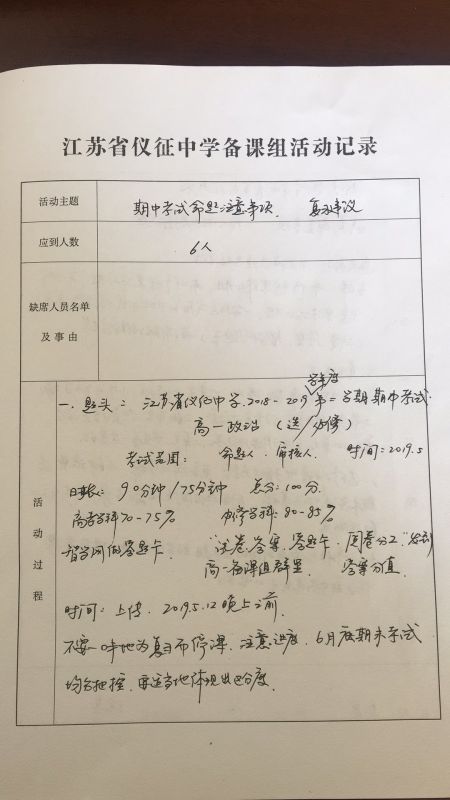 江苏省仪征中学备课组活动记录
活动主题 期中考试命题注意事项、复习建议
应到人数 6人
缺席人员名单
及事由
活动过程
一、题头：江苏省仪征中学2018-2019学年度第二学期期中考试
高一政治（选/必修）
考试范围： 命题人、审核人 时间：2019.5
时长：90分钟/75分钟 总分：100分
高考学科70-75% 必修学科：80-85%
智学网做答题卡 “试卷、答案、答题卡、阅卷分工”发到
高一备课组群里 答案分值
时间：上传 2019.5.12晚上之前
不要一味地为复习而停课、注意进度、6月底期末考试
均匀把握、要适当地体现出区分度